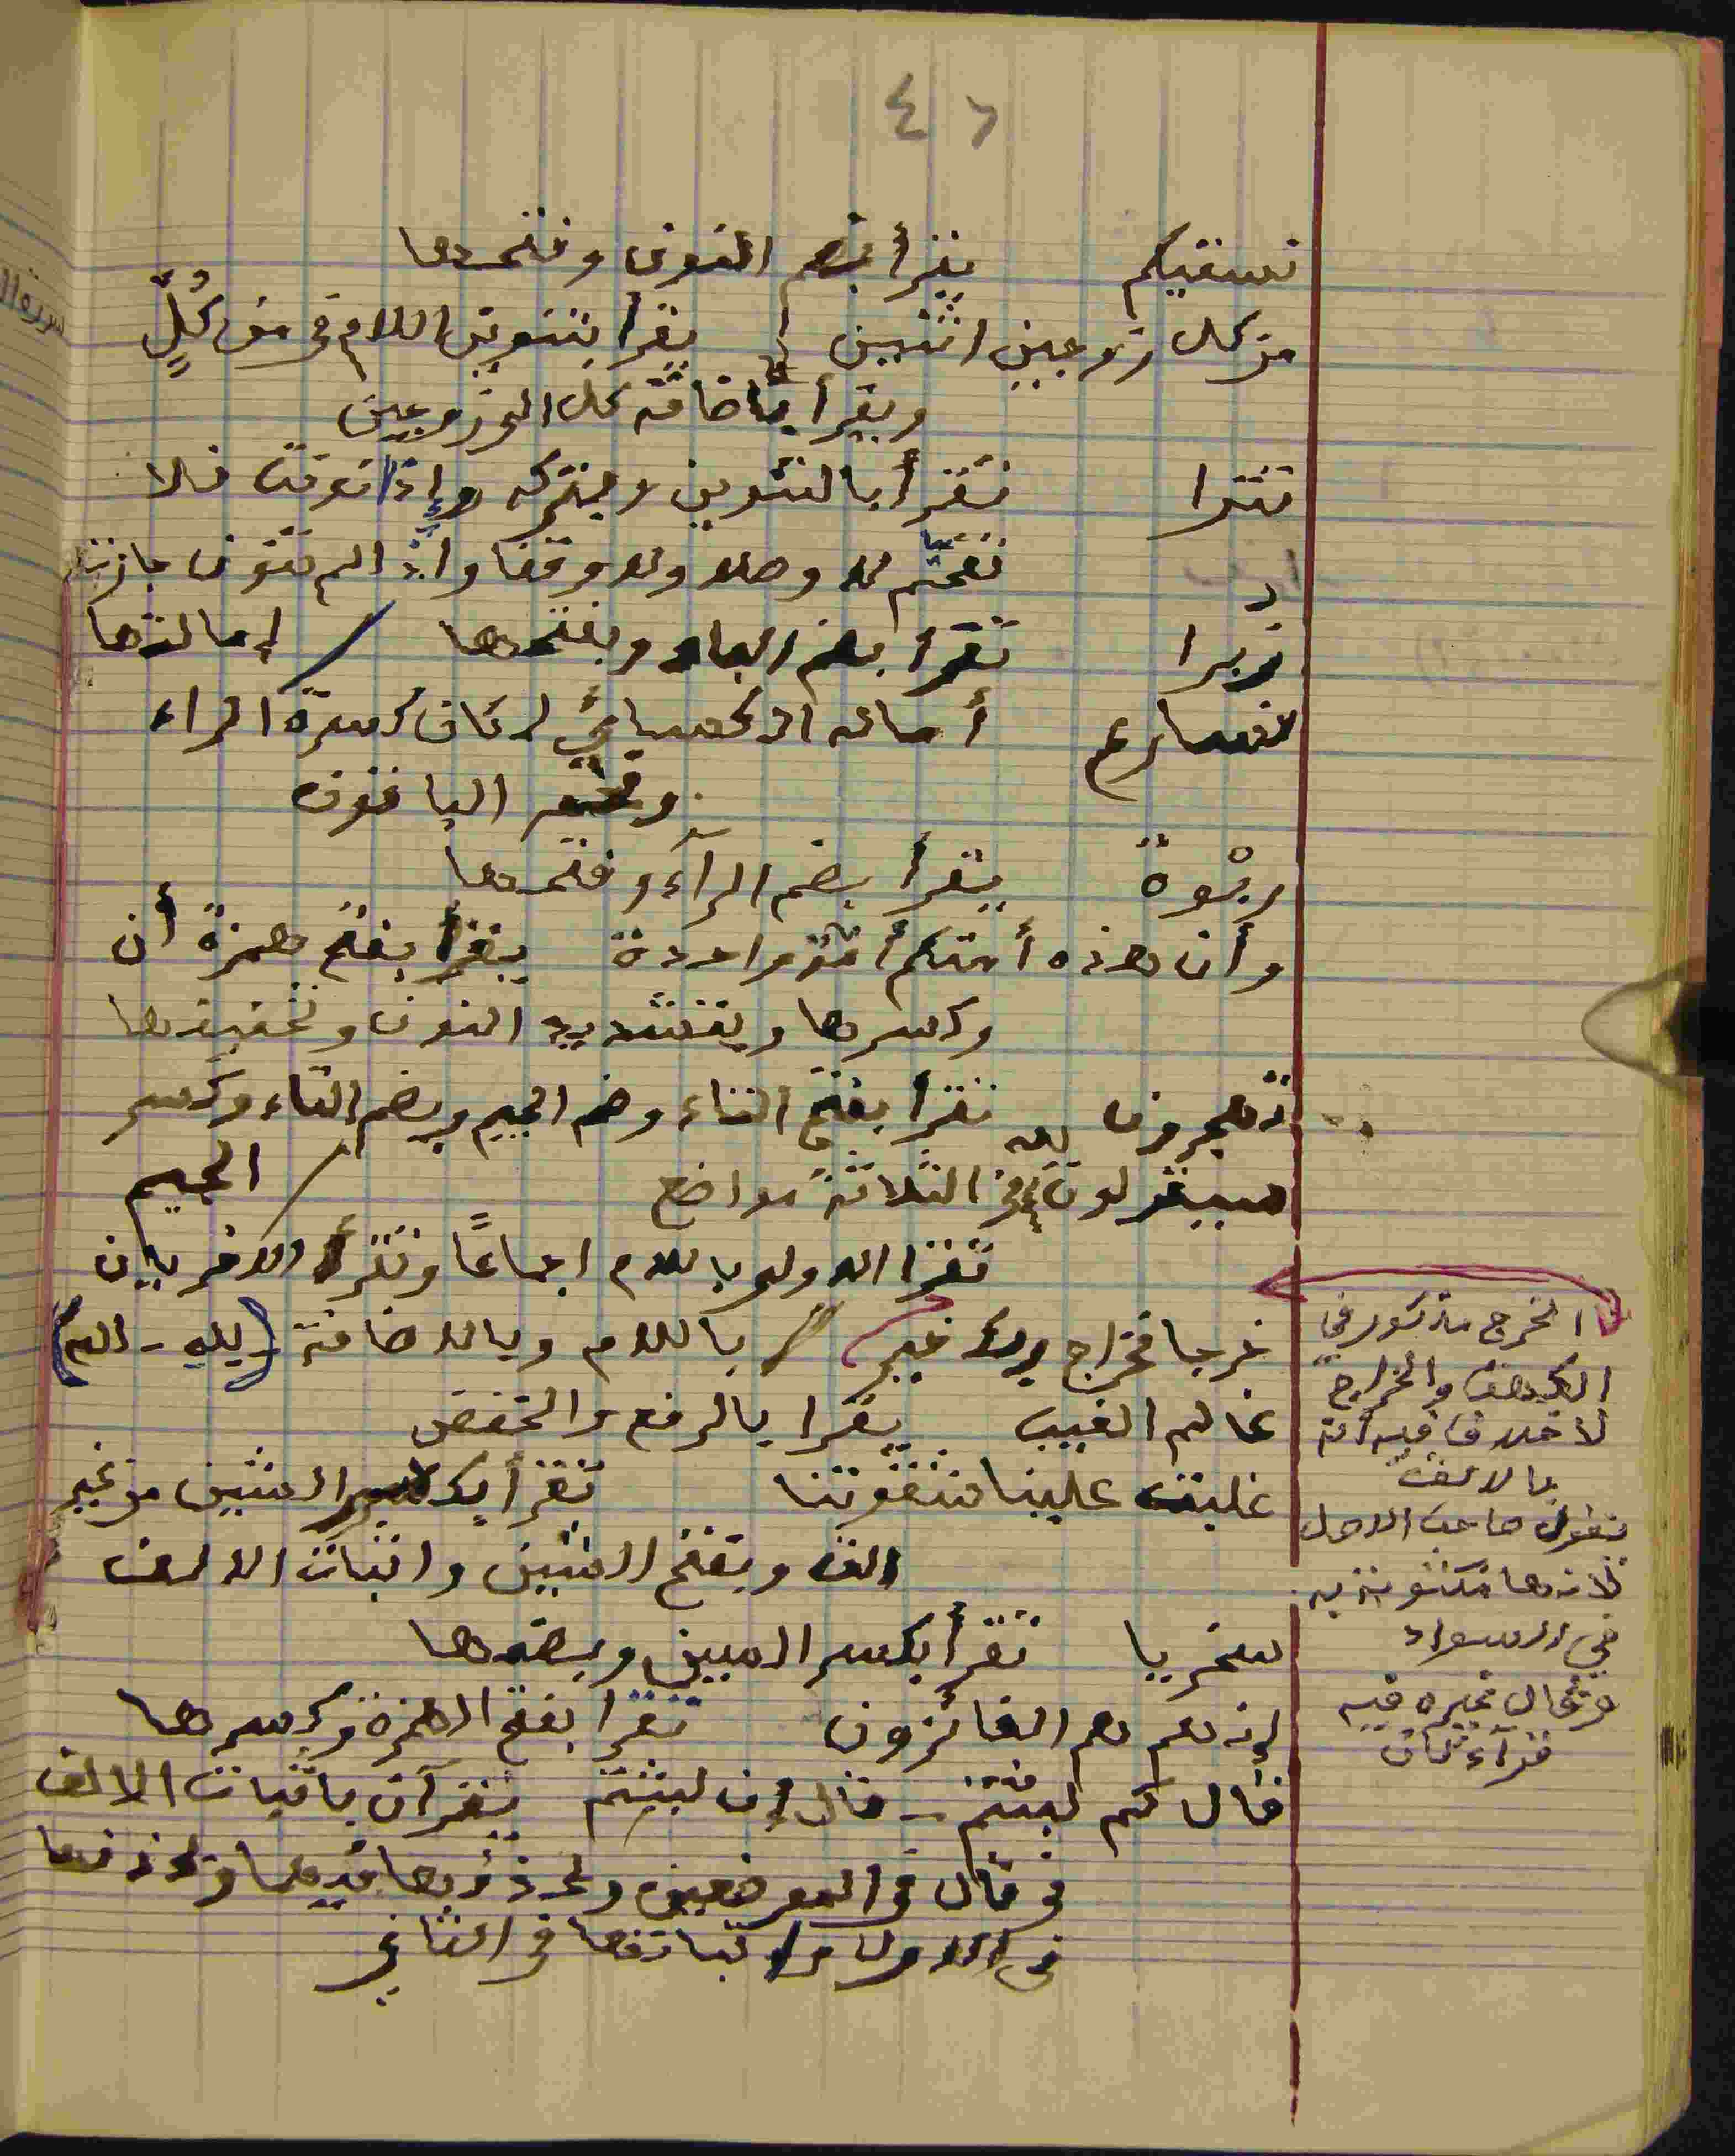 ٤٦
نسقيكم يقرأ بضم النون وفتحها
من كل زوجين اثنين يقرأ بتنوين اللام في من كُلٍّ
ويقرأ باضافة كل الى زوجين
تترا تقرأ بالتنوين وبتركه وإذا نونت فلا
تفخم لا وصلا ولا وقفا واذا لم تنون جازت
إمالتها
زبرا تقرأ بضم الباء وبفتحها
نسارع أماله الكسائي لمكان كسرة الراء
وفخمه الباقون
ربْوة يقرأ بضم الرآء وفتحها
وأن هذه أمتكم أمة واحدة يقرأ بفتح همزة أن
وكسرها وبتشديد النون وتخفيفها
تهجرون تقرأ بفتح التاء وضم الجيم وبضم التاء وكسر
الجيم
سيقولون لله في الثلاثة مواضع
تقرا الاولى باللام اجماعًا وتقرأ الاخريان
باللام وبالاضافة (لله - الله)
خرجا فخراج ربك خير
عالم الغيب يقرا بالرفع والخفض
غلبت علينا شقوتنا تقرأ بكسر الشين من غير
الف وبفتح الشين واثبات الالف
سخريا تقرأ بكسر السين وبضمها
إنهم هم الفائزون تقرا بفتح الهمزة وكسرها
قال كم لبثتم - قال إن لبثتم يقرآن باثبات الالف
في قال في الموضعين وبحذفها فيهما وبحذفها
في الاول واثباتها في الثاني
الخرج مذكور في
الكهف والخراج
لا خلاف فيه انه
بالالف
يقول صاحب الاصل
لانها مكتوبة به
في السواد
وقال غيره فيه
قرآءتان